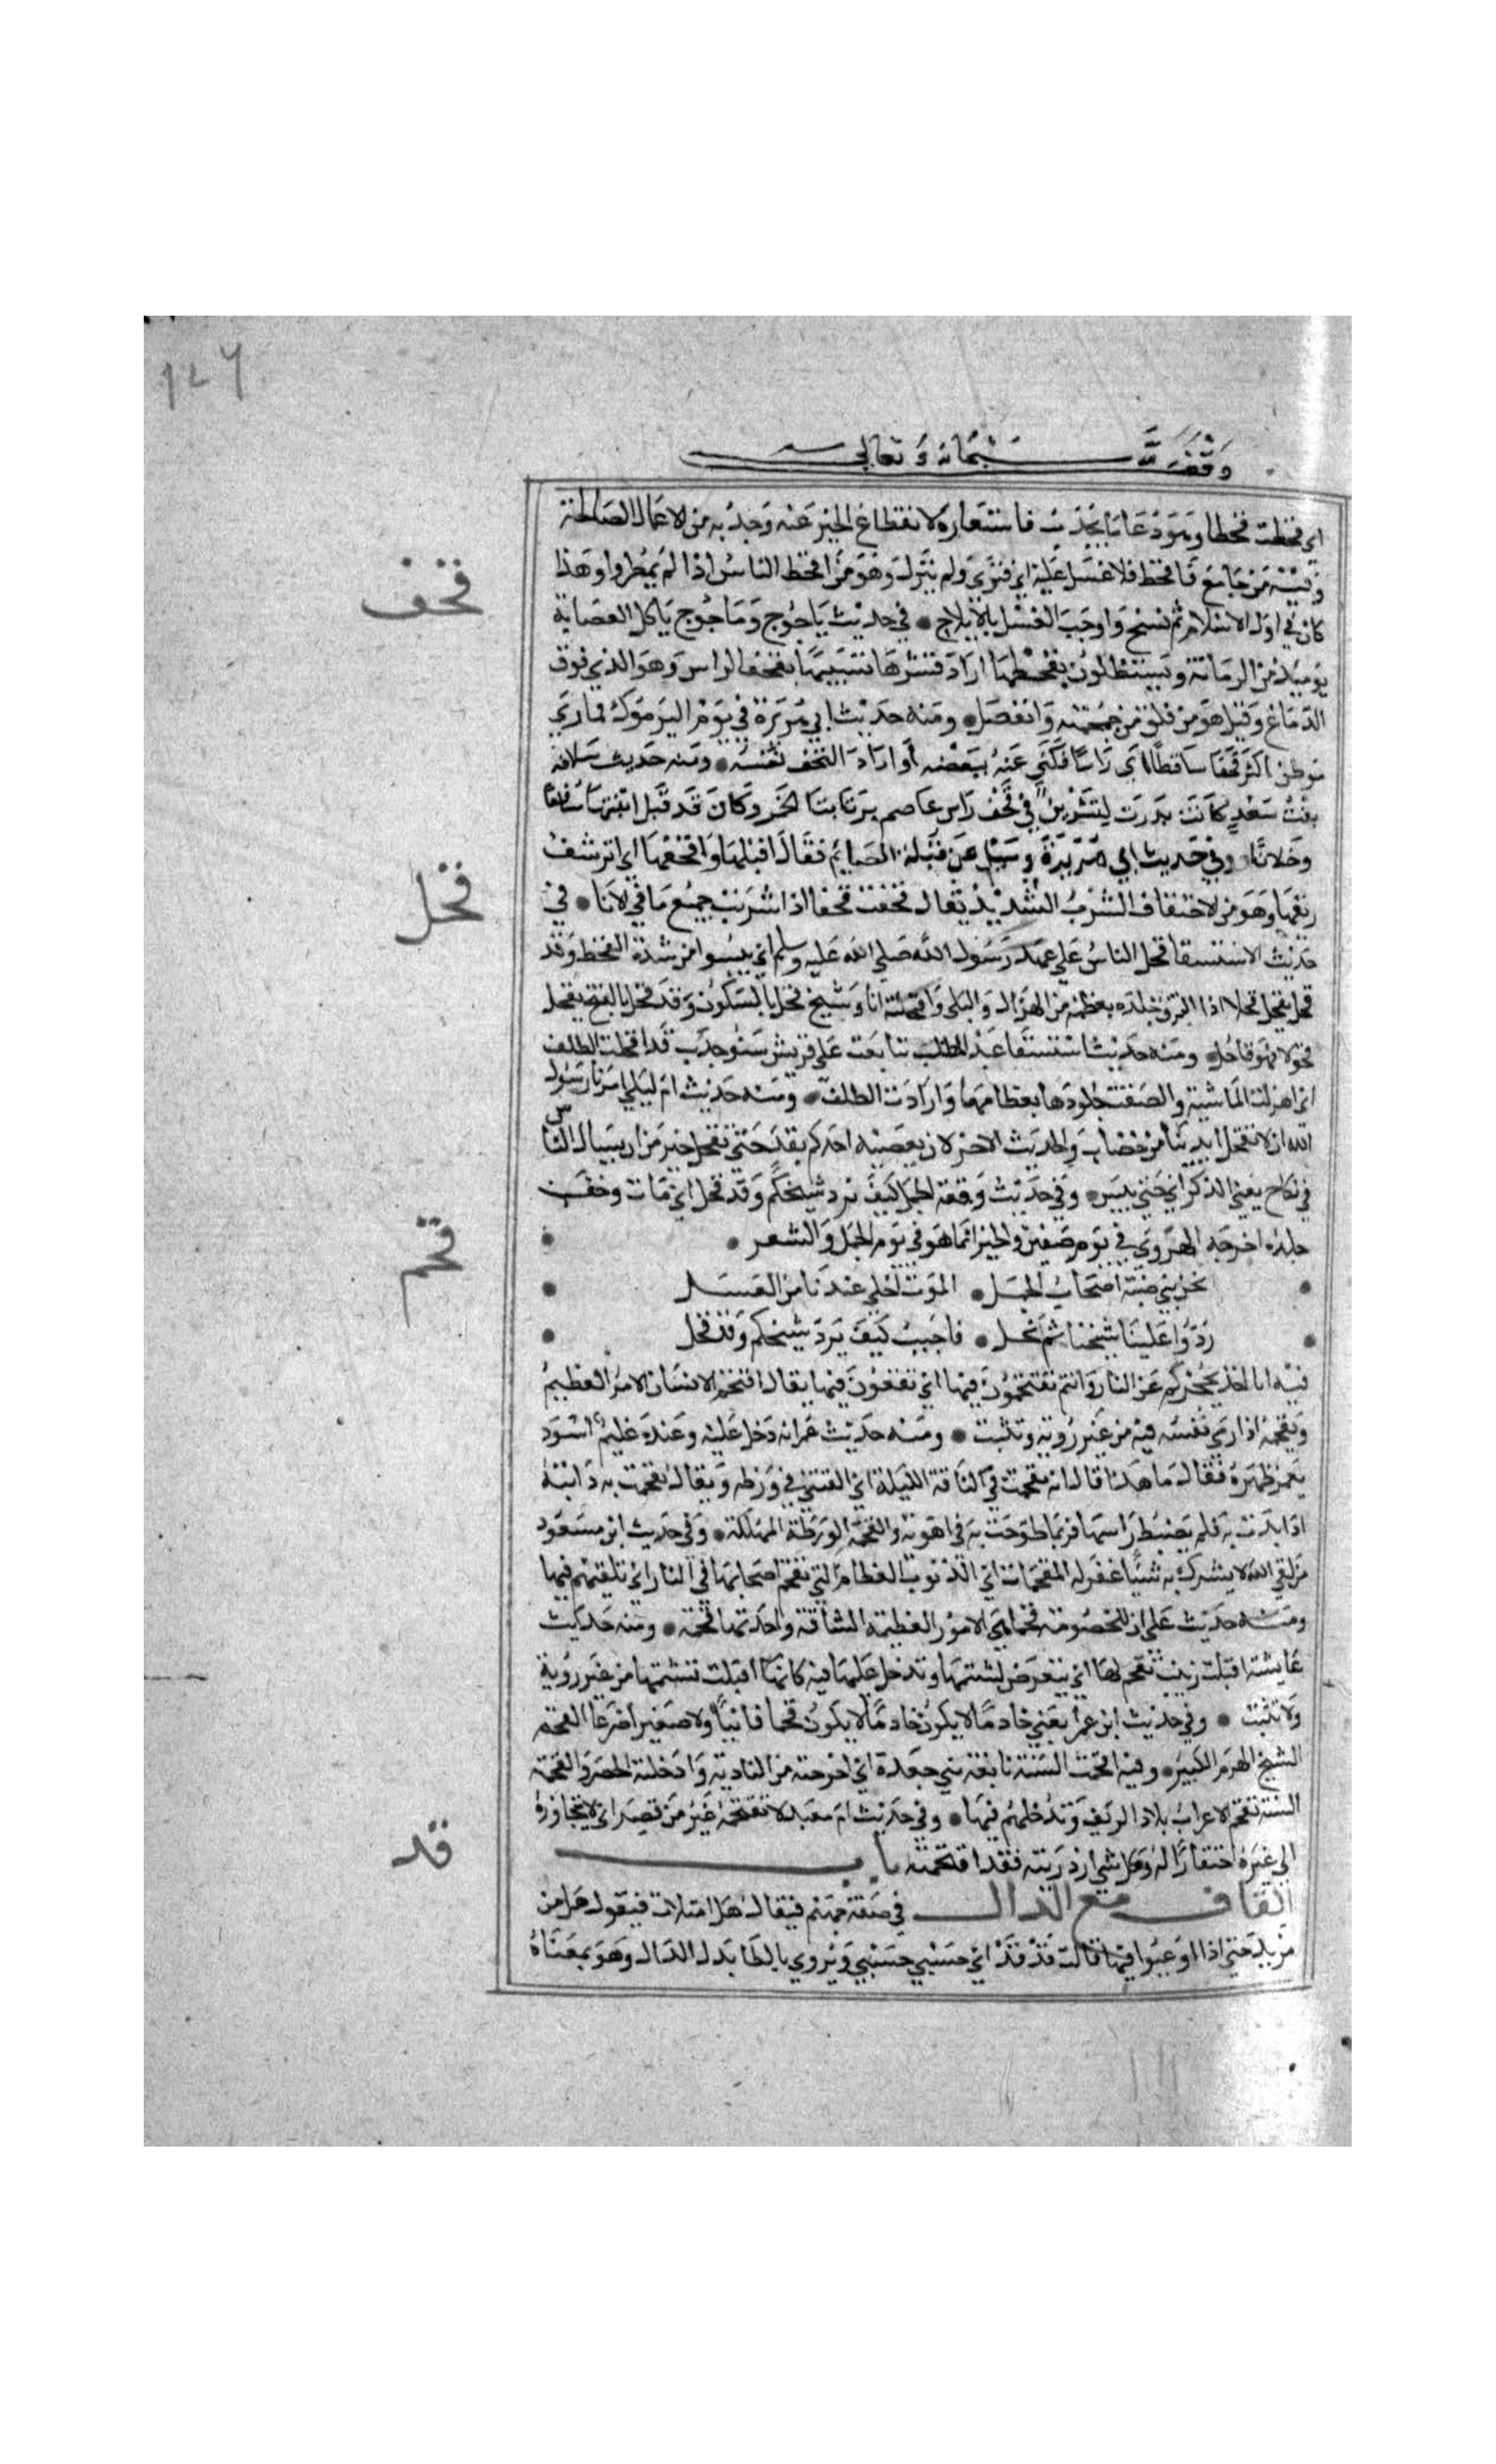 ١٤٦
وقف لله سبحانه وتعالى
اي قحطت قحطا وهو دعا بالجدب فاستعاره لانقطاع الخير عنه وجدبه من الاعمال الصالحة
وفيه من جامع فاقحط فلا غسل عليه اي فتر ولم ينزل وهو من اقحط الناس اذا لم يمطروا وهذا
كان في اول الاسلام ثم نسخ واوجب الغسل بالايلاج • في حديث ياجوج وماجوج ياكل العصابة
قحف
يوميذ من الرمانة ويستظلون بقحفها اراد قشرها تشبيها بقحف الراس وهو الذي فوق
الدماغ وقيل هو من فلق من جمجمته وانفصل • ومنه حديث ابي هريرة في يوم اليرموك فما رئي
موطن اكثر قحفا ساقطا اي راسا فكني عنه ببعضه او اراد القحف نفسه • ومنه حديث سلافة
بنت سعد كانت نذرت لتشربن في قحف راس عاصم بن ثابت الخمر وكان قد قتل ابنيها مسافعا
وخلابا • وفي حديث ابي هريرة وسيل عن قبلة الصايم فقال اقبلها واقحفها اي اترشف
ريقها وهو من الاقتحاف الشرب الشديد يقال قحفت قحفا اذا شربت جميع ما في الانا • في
قحل
حديث الاستسقا قحل الناس على عهد رسول الله صلى الله عليه وسلم اي يبسوا من شدة القحط وقد
قحل يقحل قحلا اذا التزق جلده بعظمه من الهزال والبلى واقحلته انا وشيخ قحل بالسكون وقد قحل بالفتح يقحل
قحولا فهو قاحل • ومنه حديث استسقا عبد المطلب تتابعت على قريش سنو جدب قد اقحلت الظلف
اي اهزلت الماشية والصقت جلودها بعظامها وارادت الظلف • ومنه حديث ام ليلى امرنا رسول
الله ان لا نقحل ايدينا من خضاب والحديث الاخر لان يعصبه احدكم بقد حتى يقحل خير من ان يسال الناس
في نكاح يعني الذكر اي حتى ييبس • وفي حديث وقعة الجمل كيف نرد شيخكم وقد قحل اي مات وجف
جلده اخرجه الهروي في يوم صفين والخبر انما هو في يوم الجمل والشعر •
نحن بني ضبة اصحاب الجمل • الموت احلى عندنا من العسل
ردوا علينا شيخنا ثم بجل • فاجيب كيف نرد شيخكم وقد قحل
قحم
فيه انا اخذ بحجزكم عن النار وانتم تقتحمون فيها اي تقعون فيها يقال اقتحم الانسان الامر العظيم
وتقحمه اذا رمى نفسه فيه من غير روية وتثبت • ومنه حديث عمر انه دخل عليه وعنده غليم اسود
يغمز ظهره فقال ما هذا قال انه تقحمت بي الناقة الليلة اي القتني في ورطه ويقال تقحمت به دابته
اذا ندت به فلم يضبط راسها فربما طوحت به في اهوية والقحمة الورطة المهلكة • وفي حديث ابن مسعود
من لقي الله لا يشرك به شيئا غفر له المقحمات اي الذنوب العظام التي تقحم اصحابها في النار اي تلقيهم فيها
ومنه حديث علي ان للخصومة قحما اي الامور العظيمة الشاقة واحدتها قحمة • ومنه حديث
عايشة اقبلت زينب تقحم لها اي تتعرض لشتمها وتدخل عليها فيه كانها اقبلت تشتمها من غير روية
ولا تثبت • وفي حديث ابن عمر ابغني خادما لا يكون خادما لا يكون قحما فانيا ولا صغيرا ضرعا القحم
الشيخ الهرم الكبير • وفيه اقحمت السنة نابغة بني جعدة اي اخرجته من البادية وادخلته الحضر والقحمة
السنة تقحم الاعراب بلاد الريف وتدخلهم فيها • وفي حديث ام معبد لا تقتحمه عين من قصر اي لا تتجاوزه
الى غيره احتقارا له وكل شي ازدريته فقد اقتحمته باب
قد
القاف مع الدال في صفة جهنم فيقال هل امتلات فيقول هل من
مزيد حتى اذا اوعبوا فيها قالت قد قد اي حسبي حسبي ويروي بالطا بدل الدال وهو بمعناه